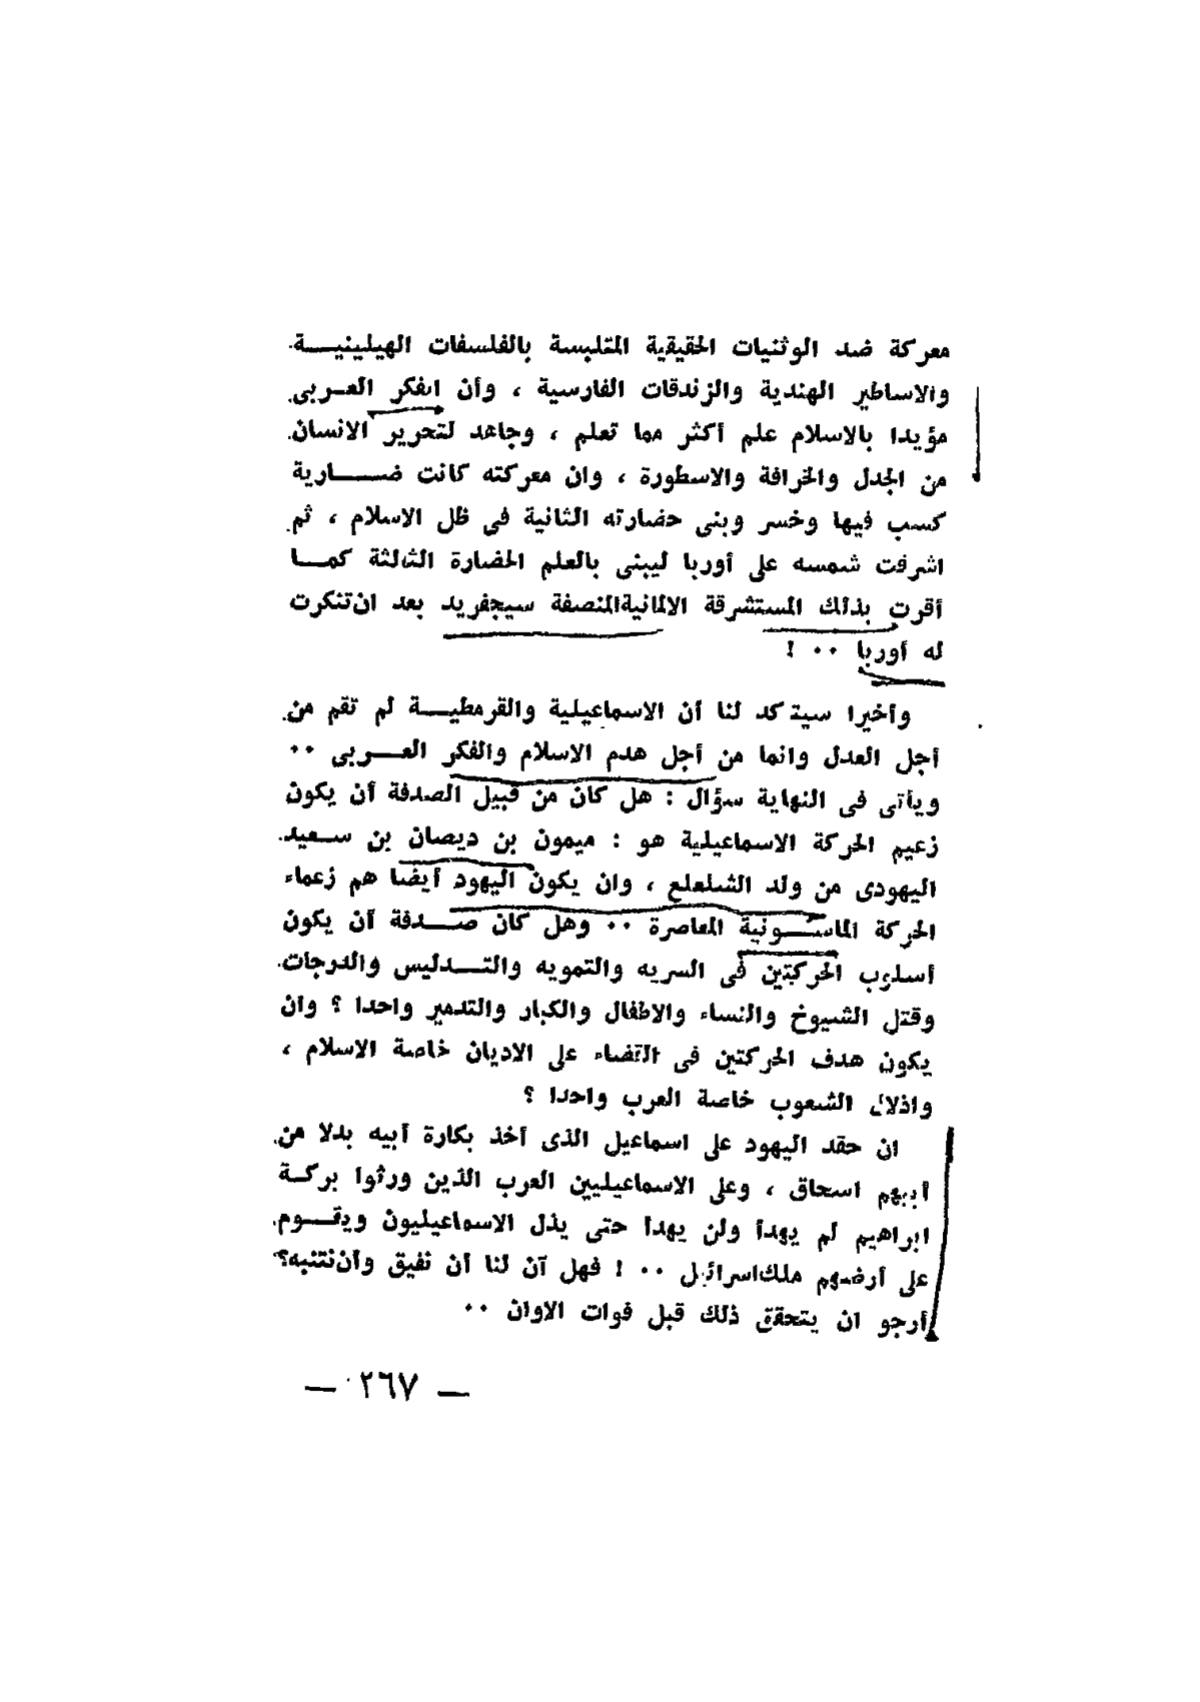 معركة ضد الوثنيات الحقيقية المتلبسة بالفلسفات الهيلينيـــة
والاساطير الهندية والزندقات الفارسية ، وأن الفكر العـربى
مؤيدا بالاسلام علم أكثر مما تعلم ، وجاهد لتحرير الانسان
من الجدل والخرافة والاسطورة ، وان معركته كانت ضـــارية
كسب فيها وخسر وبنى حضارته الثانية فى ظل الاسلام ، ثم
اشرفت شمسه على أوربا ليبنى بالعلم الحضارة الثالثة كمــا
أقرت بذلك المستشرقة الالمانية المنصفة سيجفريد بعد ان تنكرت
له أوربا ٠٠ !
وأخيرا سيتأكد لنا أن الاسماعيلية والقرمطيــة لم تقم من
أجل العدل وانما من أجل هدم الاسلام والفكر العـــربى ٠٠
ويأتى فى النهاية سؤال : هل كان من قبيل الصدفة أن يكون
زعيم الحركة الاسماعيلية هو : ميمون بن ديصان بن سـعيد
اليهودى من ولد الشلعلع ، وان يكون اليهود أيضا هم زعماء
الحركة الماســونية المعاصرة ٠٠ وهل كان صــدفة أن يكون
أسلوب الحركتين فى السريه والتمويه والتــدليس والدرجات
وقتل الشيوخ والنساء والاطفال والكبار والتدمير واحدا ؟ وان
يكون هدف الحركتين فى القضاء على الاديان خاصة الاسلام ،
واذلال الشعوب خاصة العرب واحدا ؟
ان حقد اليهود على اسماعيل الذى أخذ بكارة أبيه بدلا من
أبيهم اسحاق ، وعلى الاسماعيليين العرب الذين ورثوا بركـة
ابراهيم لم يهدأ ولن يهدأ حتى يذل الاسماعيليون ويقــوم
على أرضهم ملك اسرائيل ٠٠ ! فهل آن لنا أن نفيق وأن نتنبه؟
أرجو ان يتحقق ذلك قبل فوات الاوان ٠٠
— ٢٦٧ —